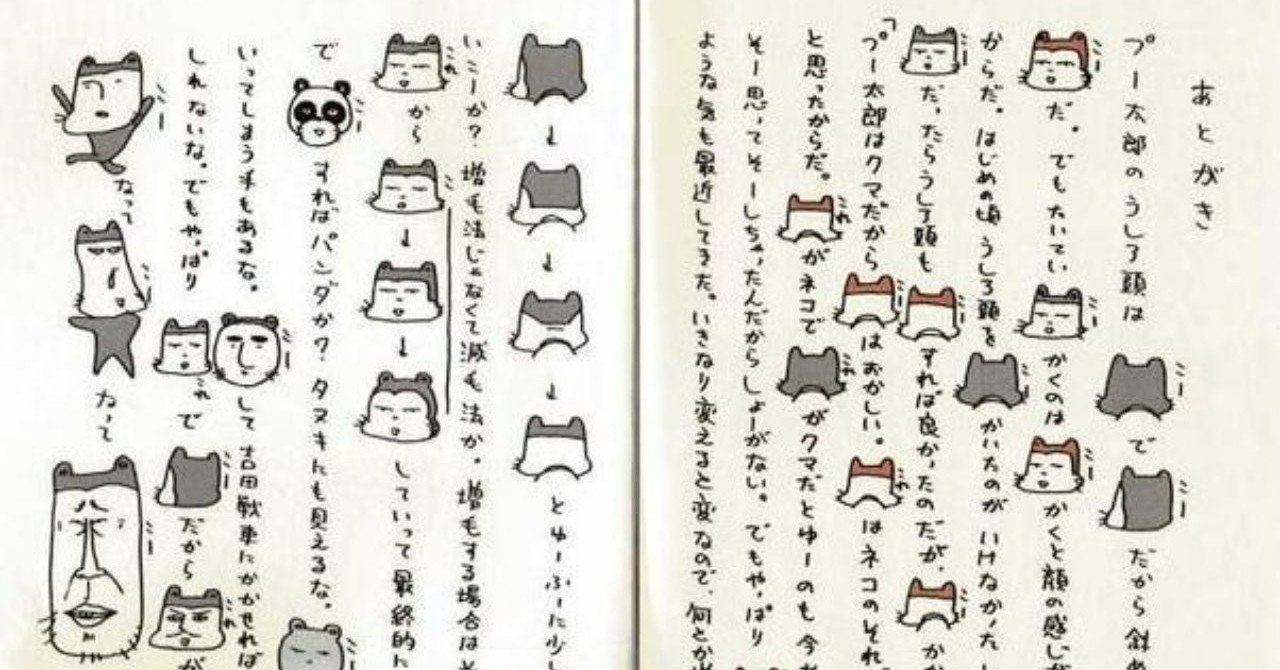 あとがき
プー太郎のうしろ頭は
で
だから斜め
だ。でもたいてい
かくのは
かくと顔の感じが
からだ。はじめの頃うしろ頭を
かいたのがいけなかった
だ、たらうしろ頭も
すれば良かったのだが、
「プー太郎はクマだから
はおかしい。
これ
はネコのそれ
と思ったからだ。
これ
がネコで
これ
がクマだとゆーのも今
そー思ってそーしちゃったんだからしょーがない。でもやっぱり
ような気も最近してきた。いきなり変えると変なので、何とか
とゆーふーに少し
いこーか?増毛法じゃなくて減毛法か。増毛する場合は
これ
から
していって最終的に
で
すればパンダか?タヌキにも見えるな。
いってしまう手もあるな。
して吉田戦車にかかせれば
しれないな。でもやっぱり
これ
で
だから
これ
が
なって
なって